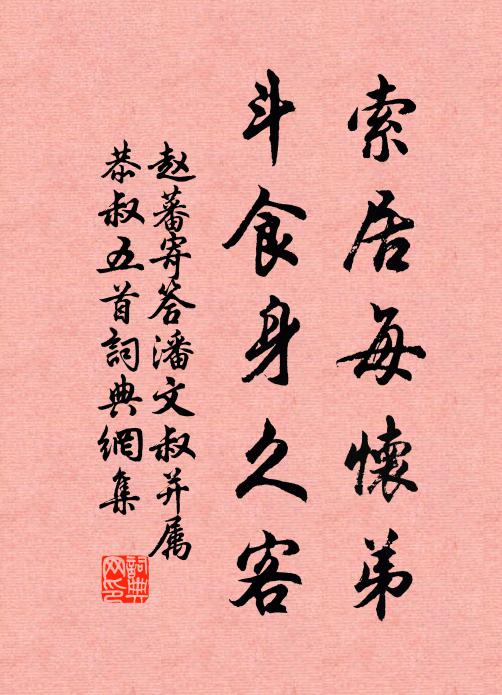 索居每懷弟
斗食身久客
赵蕃寄答潘文叔并属
恭叔五首詞典網集
詞典网印